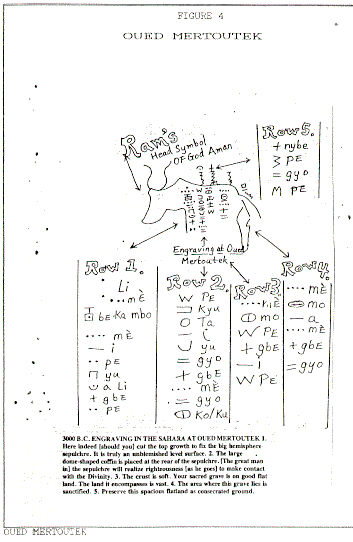 FIGURE 4
OUED MERTOUTEK
Ram's
Head Symbol
OF God Aman
Row 5.
+ nybe
PE
= gyo
M PE
Engraving at Oued
Mertoutek
Row 1.
Li
.... mÈ
be Ka mbo
.... mÈ
— i
.. PE
yu
a Li
+ gbE
.. PE
Row 2.
W PE
Kyu
O Ta
— i
yu
= gyo
+ gbE
.... mÈ
= gyo
Ko/Ku
Row 3
mo
W PE
+ gbE
— i
W PE
Row 4.
.... mÈ
mo
— a
.... mÈ
+ gbE
= gyo
3000 B.C. ENGRAVING IN THE SAHARA AT OUED MERTOUTEK 1.
Here indeed [should you] cut the top growth to fix the big hemisphere
sepulchre. It is truly an unblemished level surface. 2. The large
dome-shaped coffin is placed at the rear of the sepulchre. [The great man
in] the sepulchre will realize righteousness [as he goes] to make contact
with the Divinity. 3. The crust is soft. Your sacred grave is on good flat
land. The land it encompasses is vast. 4. The area where this grave lies is
sanctified. 5. Preserve this spacious flatland as consecrated ground.
OUED MERTOUTEK